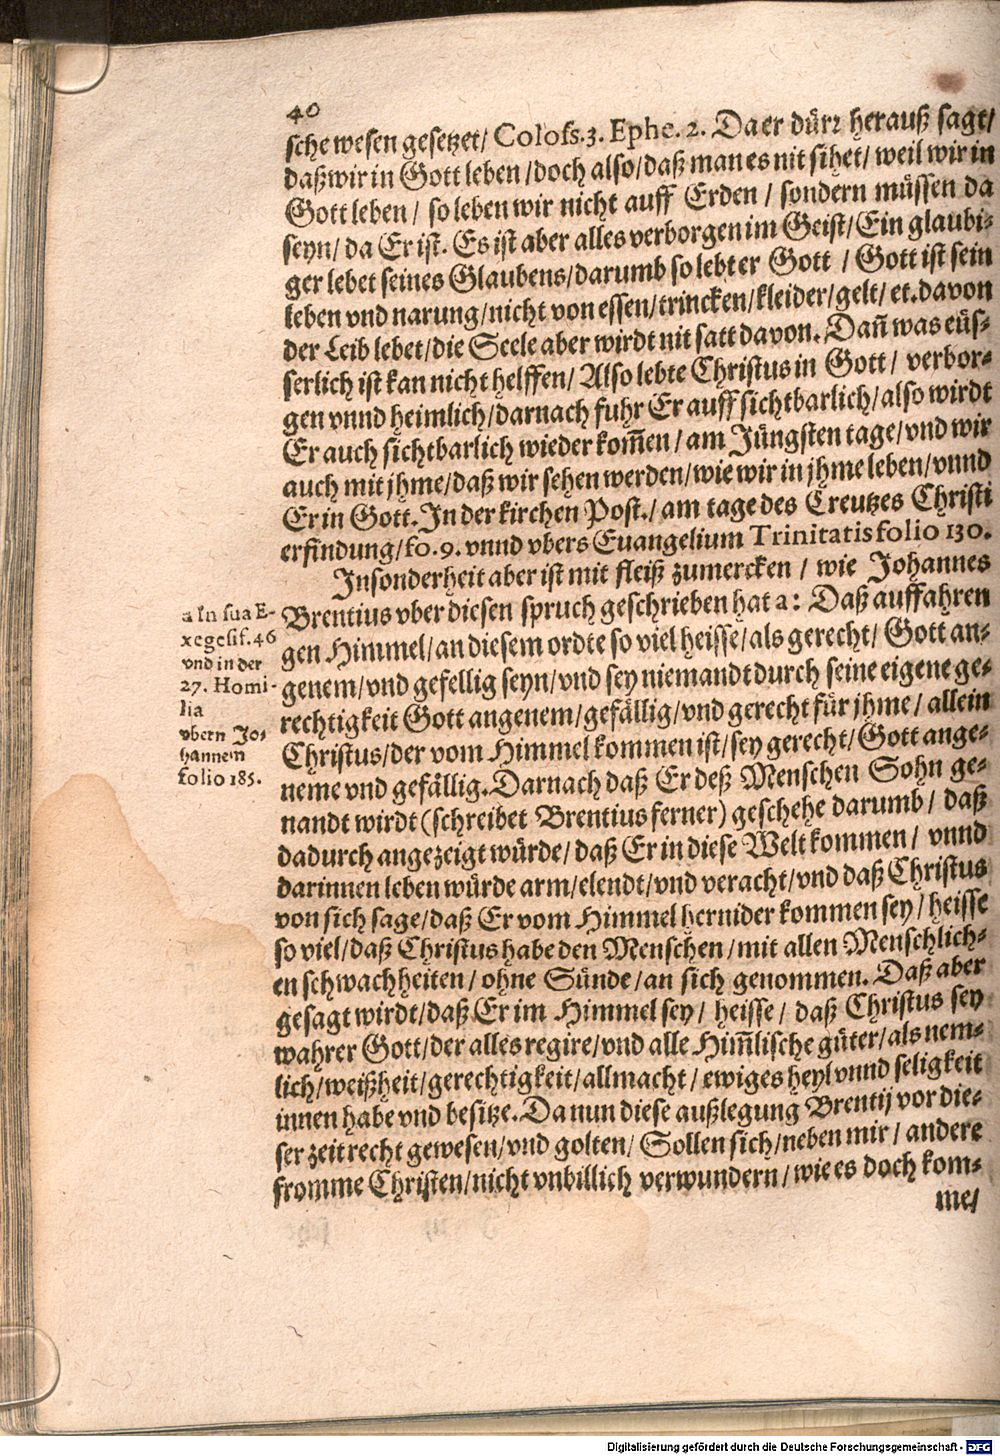 40
sche wesen gesetzet/ Coloss. 3. Ephe. 2. Da er dürr herauß sagt/
daß wir in Gott leben / doch also/ daß man es nit sihet/ weil wir in
Gott leben / so leben wir nicht auff Erden / sondern müssen da
seyn/ da Er ist. Es ist aber alles verborgen im Geist/ Ein glaubi-
ger lebet seines Glaubens/ darumb so lebt er Gott / Gott ist sein
leben vnd narung/ nicht von essen/ trincken/ kleider/ gelt/ et. davon
der Leib lebet/ die Seele aber wirdt nit satt davon. Dañ was eüs-
serlich ist kan nicht helffen/ Also lebte Christus in Gott / verbor-
gen vnnd heimlich/ darnach fuhr Er auff sichtbarlich/ also wirdt
Er auch sichtbarlich wieder kom̃en / am Jüngsten tage/ vnd wir
auch mit jhme/ daß wir sehen werden/ wie wir in jhme leben/ vnnd
Er in Gott. In der kirchen Post./ am tage des Creutzes Christi
erfindung/ fo. 9. vnnd vbers Euangelium Trinitatis folio 130.
Insonderheit aber ist mit fleiß zumercken / wie Johannes
Brentius vber diesen spruch geschrieben hat a: Daß auffahren
gen Himmel/ an diesem ordte so viel heisse/ als gerecht/ Gott an-
genem/ vnd gefellig seyn/ vnd sey niemandt durch seine eigene ge-
rechtigkeit Gott angenem/ gefällig/ vnd gerecht für jhme / allein
Christus/ der vom Himmel kommen ist/ sey gerecht/ Gott ange-
neme vnd gefällig. Darnach daß Er deß Menschen Sohn ge-
nandt wirdt (schreibet Brentius ferner) geschehe darumb / daß
dadurch angezeigt würde/ daß Er in diese Welt kommen / vnnd
darinnen leben würde arm/ elendt/ vnd veracht/ vnd daß Christus
von sich sage/ daß Er vom Himmel hernider kommen sey / heisse
so viel/ daß Christus habe den Menschen / mit allen Menschlich-
en schwachheiten / ohne Sünde / an sich genommen. Daß aber
gesagt wirdt/ daß Er im Himmel sey / heisse / daß Christus sey
wahrer Gott/ der alles regire/ vnd alle Him̃lische güter/ als nem-
lich/ weißheit/ gerechtigkeit/ allmacht / ewiges heyl vnnd seligkeit
innen habe vnd besitze. Da nun diese außlegung Brentij vor die-
ser zeit recht gewesen/ vnd golten / Sollen sich/ neben mir / andere
fromme Christen/ nicht vnbillich verwundern / wie es doch kom-
me/
a In sua E-
xegesi f. 46
vnd in der
27. Homi-
lia
vbern Jo-
hannem
folio 185.
Digitalisierung gefördert durch die Deutsche Forschungsgemeinschaft - DFG